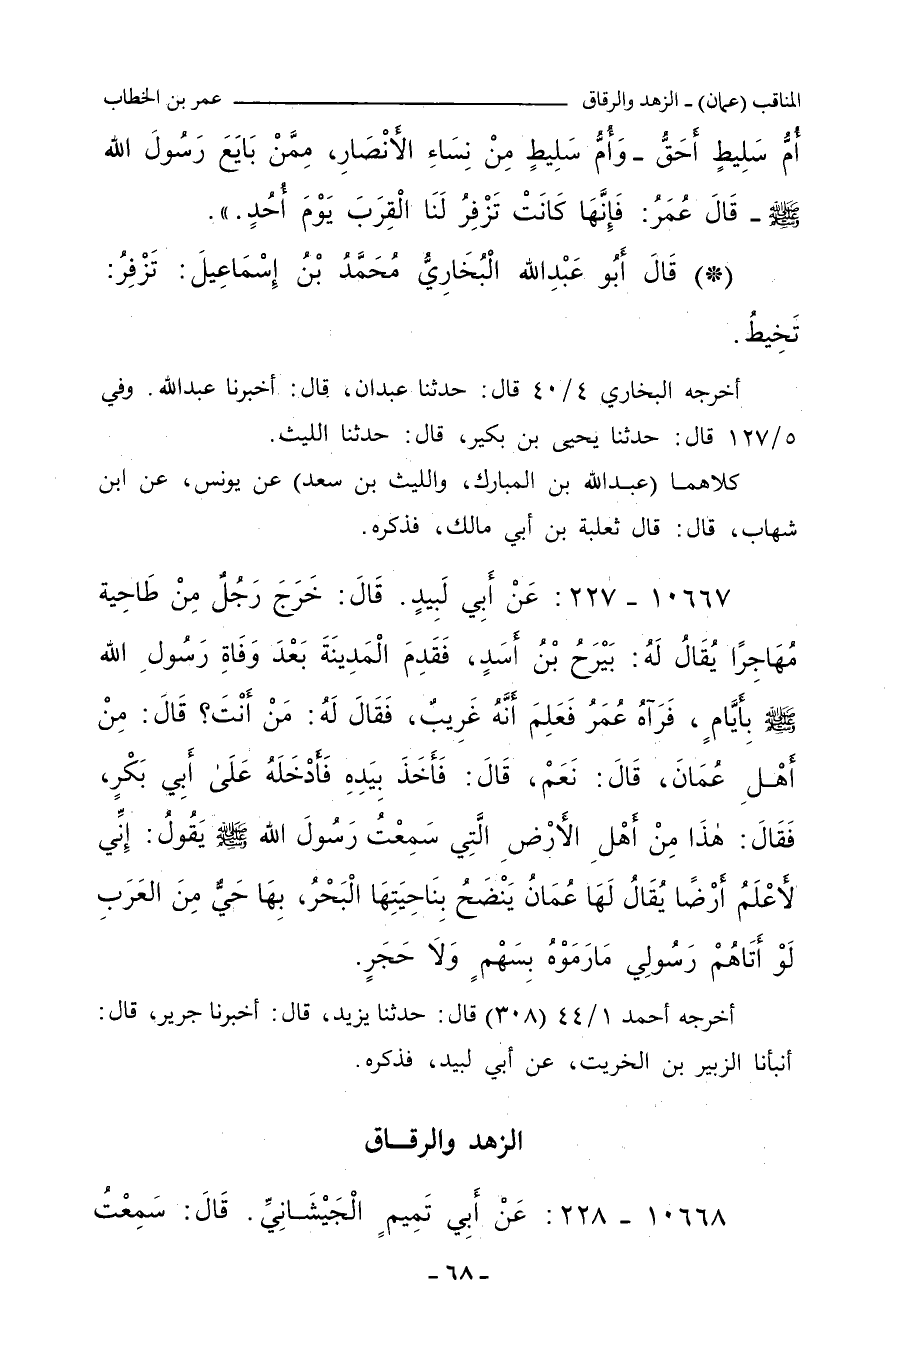 المناقب (عمان) - الزهد والرقاق ــــــــــــ عمر بن الخطاب
أُمُّ سَلِيطٍ أَحَقُّ - وَأُمُّ سَلِيطٍ مِنْ نِسَاءِ الْأَنْصَارِ، مِمَّنْ بَايَعَ رَسُولَ الله
ﷺ - قَالَ عُمَرُ: فَإِنَّهَا كَانَتْ تَزْفِرُ لَنَا الْقِرَبَ يَوْمَ أُحُدٍ.».
(*) قَالَ أَبُو عَبْدِالله الْبُخَارِيُّ مُحَمَّدُ بْنُ إِسْمَاعِيلَ: تَزْفِرُ:
تَخِيطُ.
أخرجه البخاري ٤/٤٠ قال: حدثنا عبدان، قال: أخبرنا عبدالله. وفي
٥/١٢٧ قال: حدثنا يحيى بن بكير، قال: حدثنا الليث.
كلاهما (عبدالله بن المبارك، والليث بن سعد) عن يونس، عن ابن
شهاب، قال: قال ثعلبة بن أبي مالك، فذكره.
١٠٦٦٧ - ٢٢٧: عَنْ أَبِي لَبِيدٍ. قَالَ: خَرَجَ رَجُلٌ مِنْ طَاحِية
مُهَاجِرًا يُقَالُ لَهُ: بَيْرَحُ بْنُ أَسَدٍ، فَقَدِمَ الْمَدِينَةَ بَعْدَ وَفَاةِ رَسُولِ الله
ﷺ بِأَيَّامٍ، فَرَآهُ عُمَرُ فَعَلِمَ أَنَّهُ غَرِيبٌ، فَقَالَ لَهُ: مَنْ أَنْتَ؟ قَالَ: مِنْ
أَهْلِ عُمَانَ، قَالَ: نَعَمْ، قَالَ: فَأَخَذَ بِيَدِهِ فَأَدْخَلَهُ عَلَىٰ أَبِي بَكْرٍ،
فَقَالَ: هٰذَا مِنْ أَهْلِ الأَرْضِ الَّتِي سَمِعْتُ رَسُولَ الله ﷺ يَقُولُ: إِنِّي
لَأَعْلَمُ أَرْضًا يُقَالُ لَهَا عُمَانُ يَنْضَحُ بِنَاحِيَتِهَا الْبَحْرُ، بِهَا حَيٌّ مِنَ العَرَبِ
لَوْ أَتَاهُمْ رَسُولِي مَارَمَوْهُ بِسَهْمٍ وَلَا حَجَرٍ.
أخرجه أحمد ١/٤٤ (٣٠٨) قال: حدثنا يزيد، قال: أخبرنا جرير، قال:
أنبأنا الزبير بن الخريت، عن أبي لبيد، فذكره.
الزهد والرقـاق
١٠٦٦٨ - ٢٢٨: عَنْ أَبِي تَمِيمٍ الْجَيْشَانِيِّ. قَالَ: سَمِعْتُ
- ٦٨ -